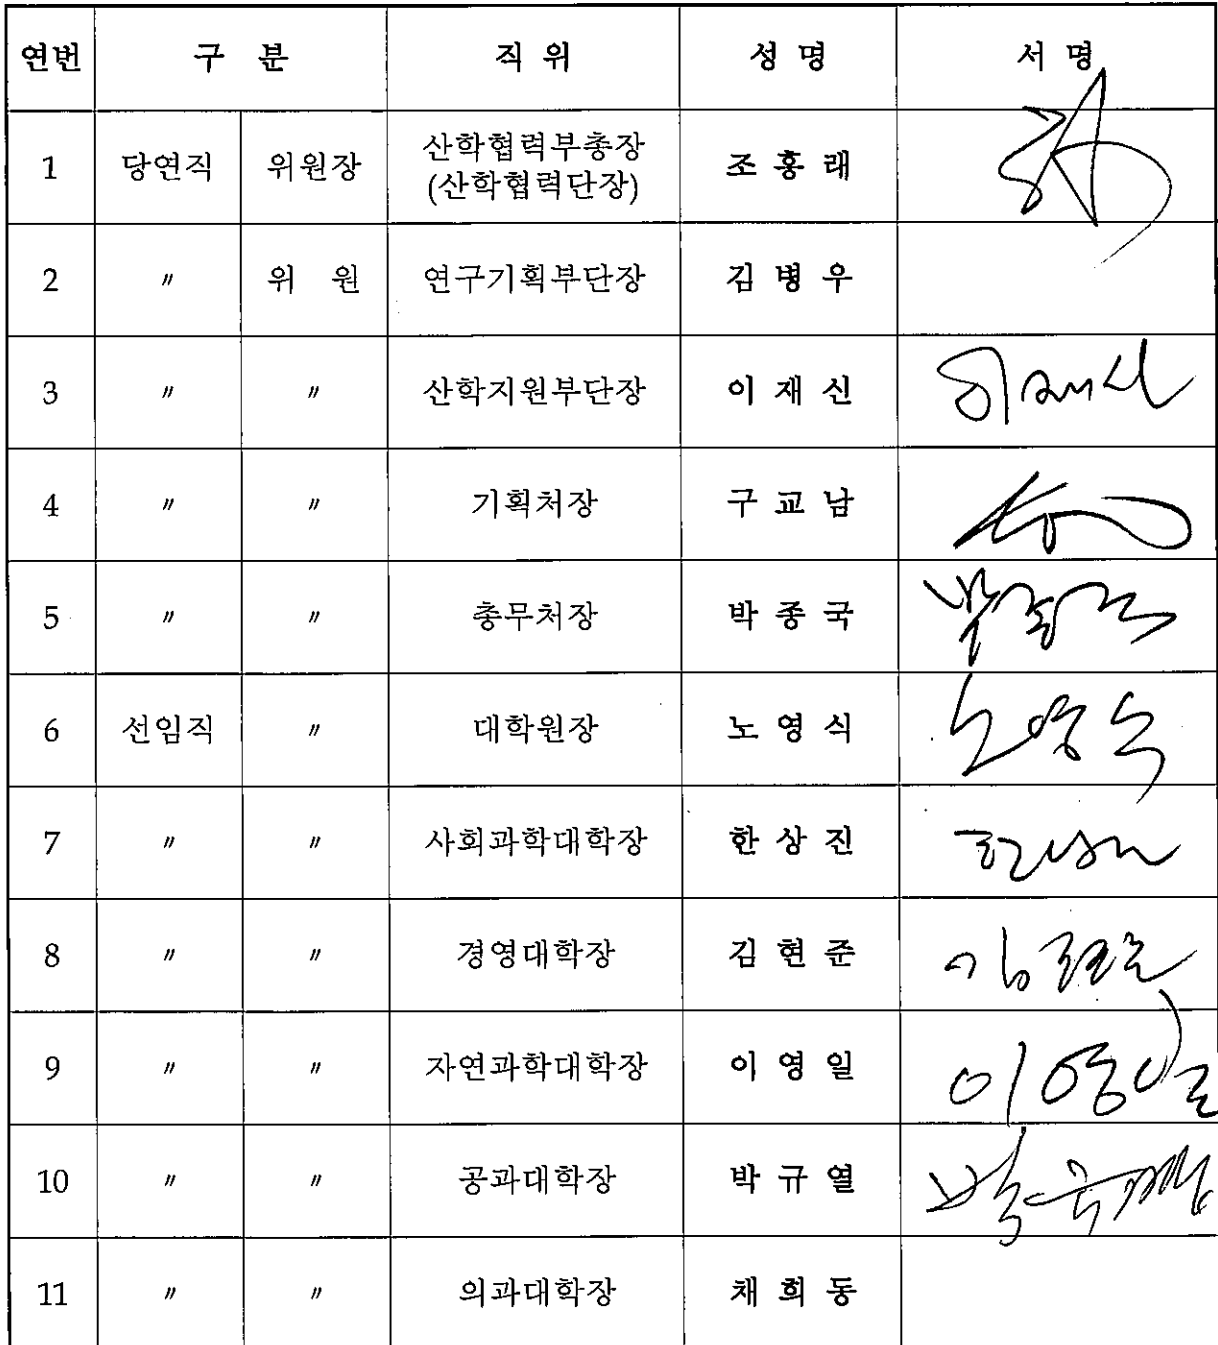 연번 구 분 직 위 성 명 서 명
1 당연직 위원장 산학협력부총장 조 홍 래
(산학협력단장)
2 〃 위 원 연구기획부단장 김 병 우
3 〃 〃 산학지원부단장 이 재 신 이재신
4 〃 〃 기획처장 구 교 남
5 〃 〃 총무처장 박 종 국 박종국
6 선임직 〃 대학원장 노 영 식 노영식
7 〃 〃 사회과학대학장 한 상 진 한상진
8 〃 〃 경영대학장 김 현 준 김현준
9 〃 〃 자연과학대학장 이 영 일 이영일
10 〃 〃 공과대학장 박 규 열 박규열
11 〃 〃 의과대학장 채 희 동